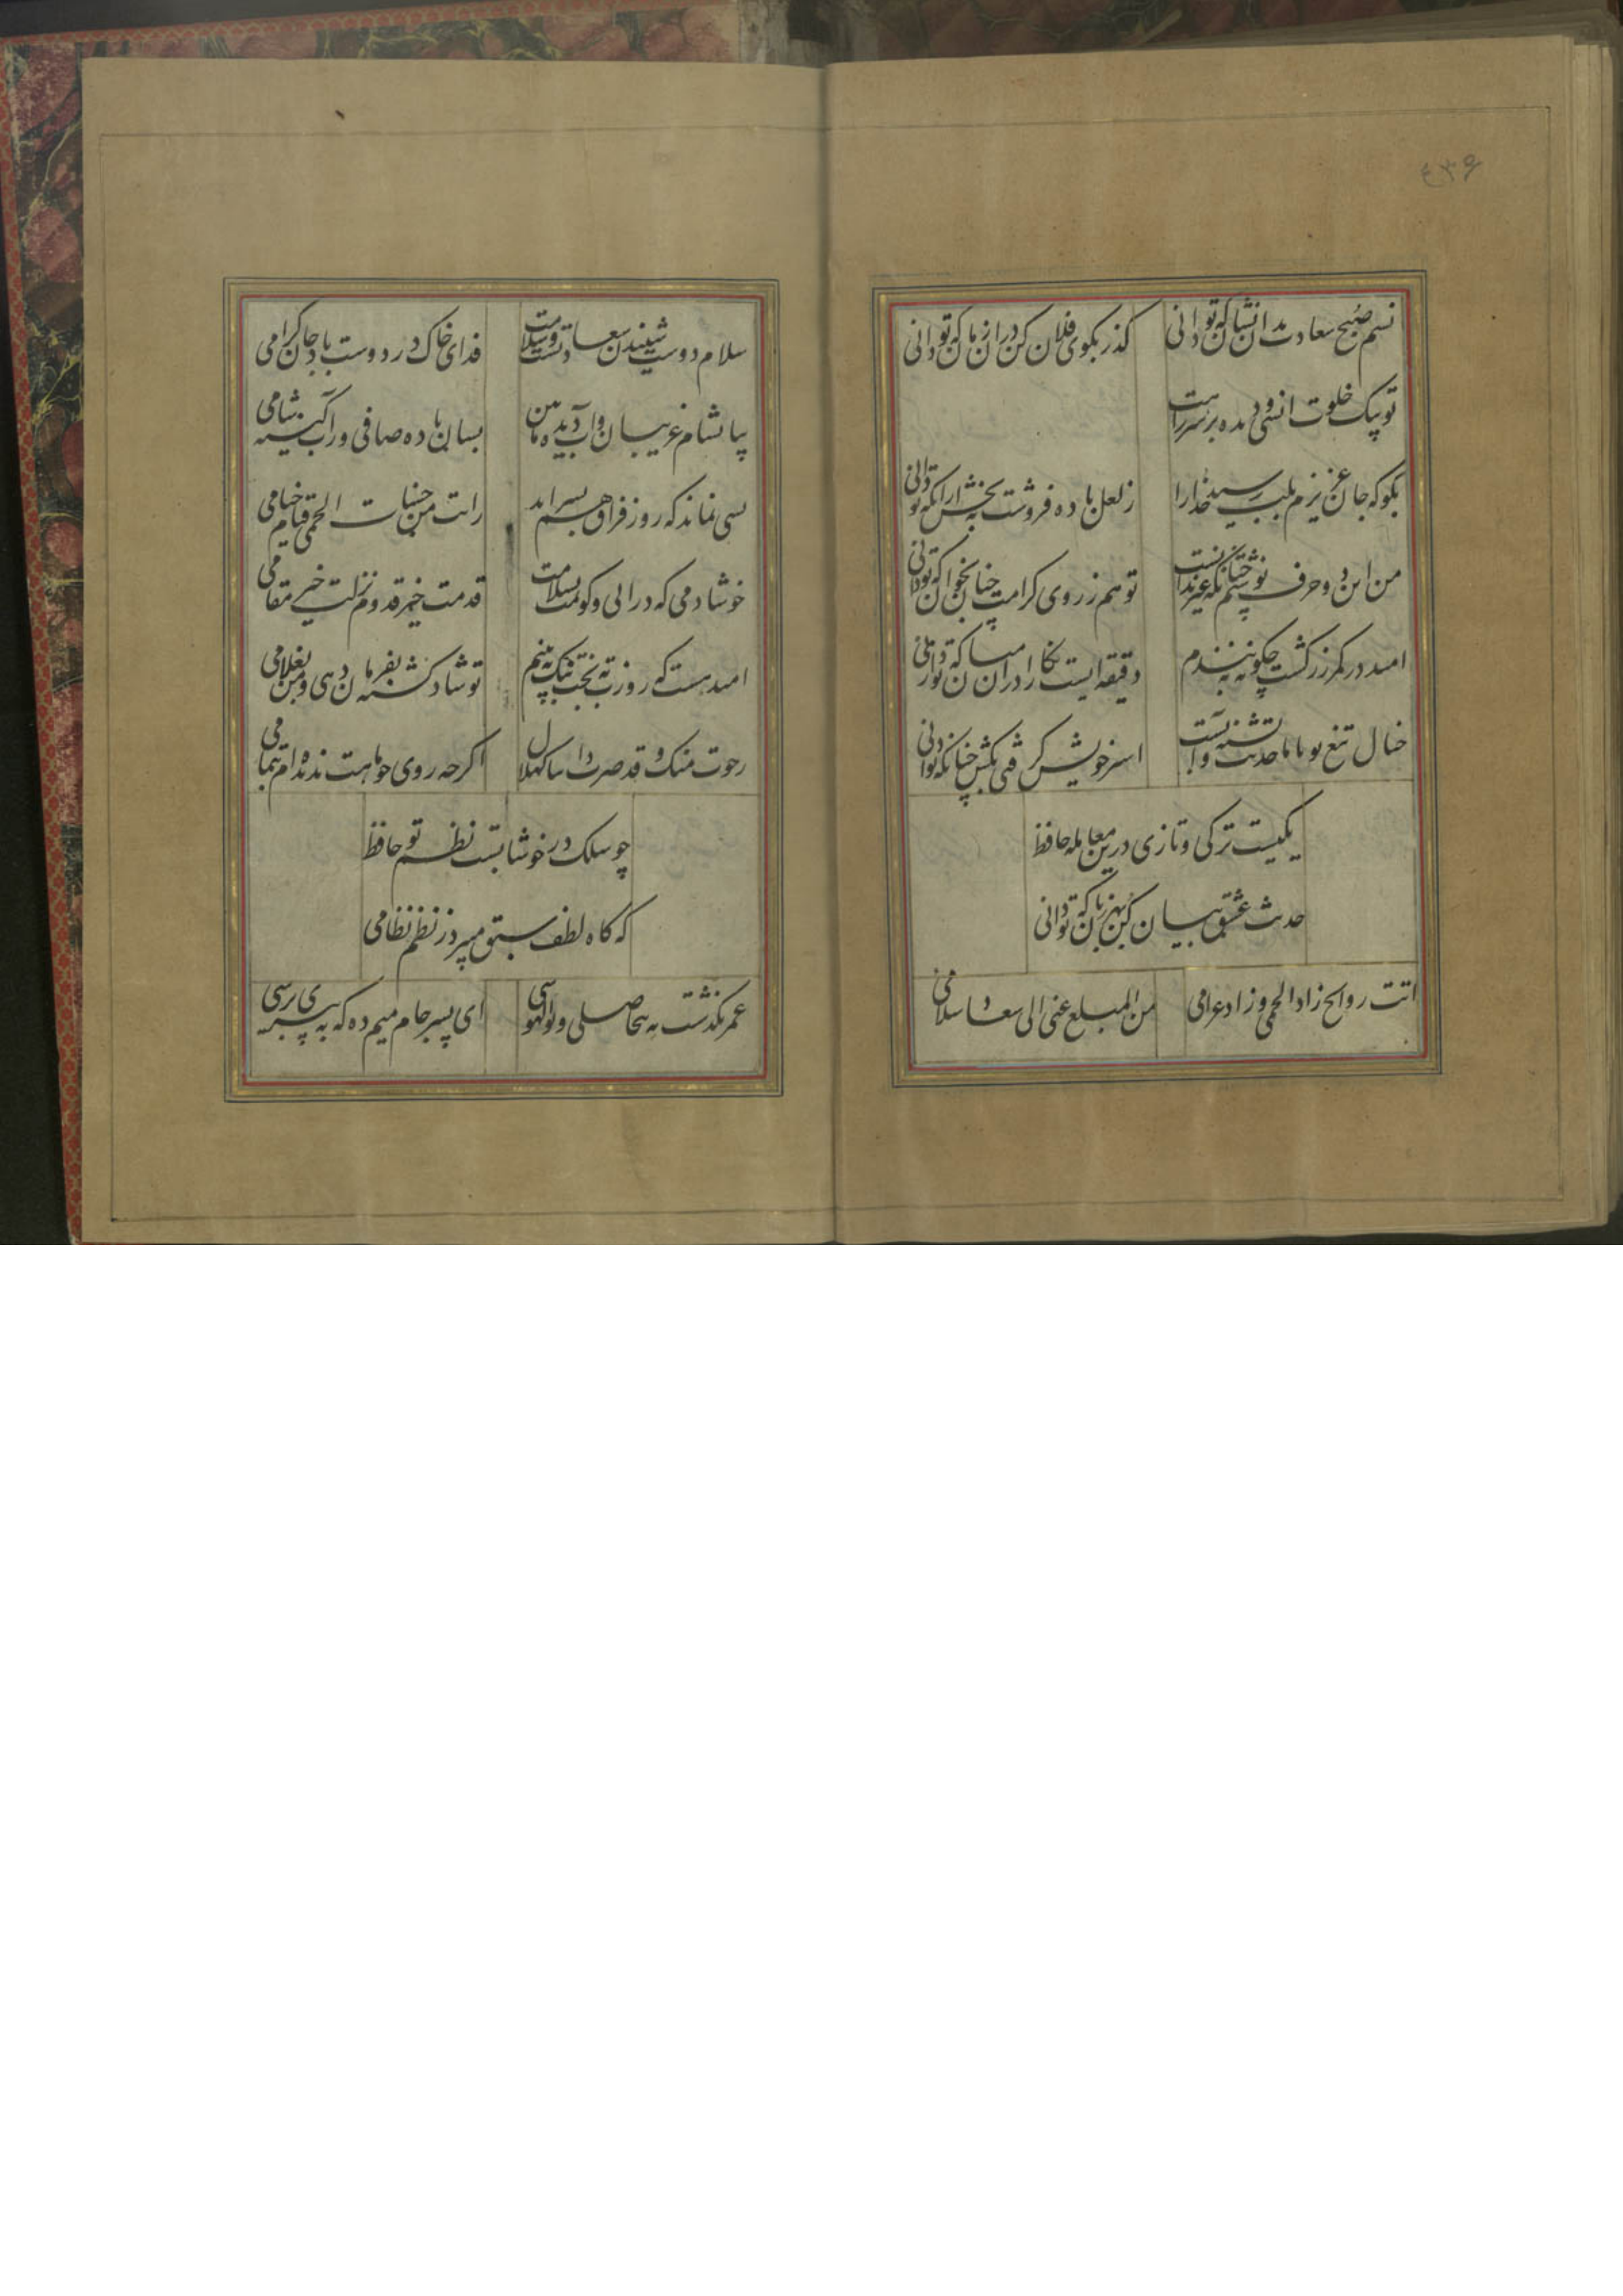 ۴۳۶
نسیم صبح سعادت بدان نشان که تو دانی گذر بکوی فلان کن در آن زمان که تو دانی
تو پیک خلوت انسی و دیده بر سر راهت
بکو که جان عزیزم بلب رسید خدارا ز لعل باده فروشت ببخش ارانکه تو دانی
من این دو حرف نوشتم چنانکه غیر ندانست تو هم ز روی کرامت چنان بخوان که تو دانی
امید در کمر زرکشت چکونه ببندم دقیقه ایست نکارا در آن میان که تو دانی
خیال تیغ تو با ما حدیث تشنه و آبست اسیر خویش کرفتی بکش چنانکه تو دانی
یکیست ترکی و تازی درین معامله حافظ
حدیث عشق بیان کن بهر زبان که تو دانی
اتت روایح زاد الحمی و زاد غرامی من المبلغ عنی الی سعاد سلامی
سلام دوست شنیدن سعادتست و سلامت فدای خاک در دوست باد جان کرامی
بیا بشام غریبان و آب دیده من بین بسان باده صافی در آبکینه شامی
بسی نماند که روز فراق بسر آید رایت من حنبات الحمی قیام خیامی
خوشا دمی که در آیی و کویمت بسلامت قدمت خیر قدوم نزلت خیر مقامی
امید هست که روزت به بخت نیک به بینم تو شاد کشته بفرمان دهی و من بغلامی
اکرچه روی چو ماهت ندیده ام بتمامی
چو سلک در خوشابست نظم تو حافظ
که کاه لطف سبق میبرد ز نظم نظامی
عمر بکذشت به بیحاصلی و بوالهوسی ای پسر جام میم ده که به پیری برسی